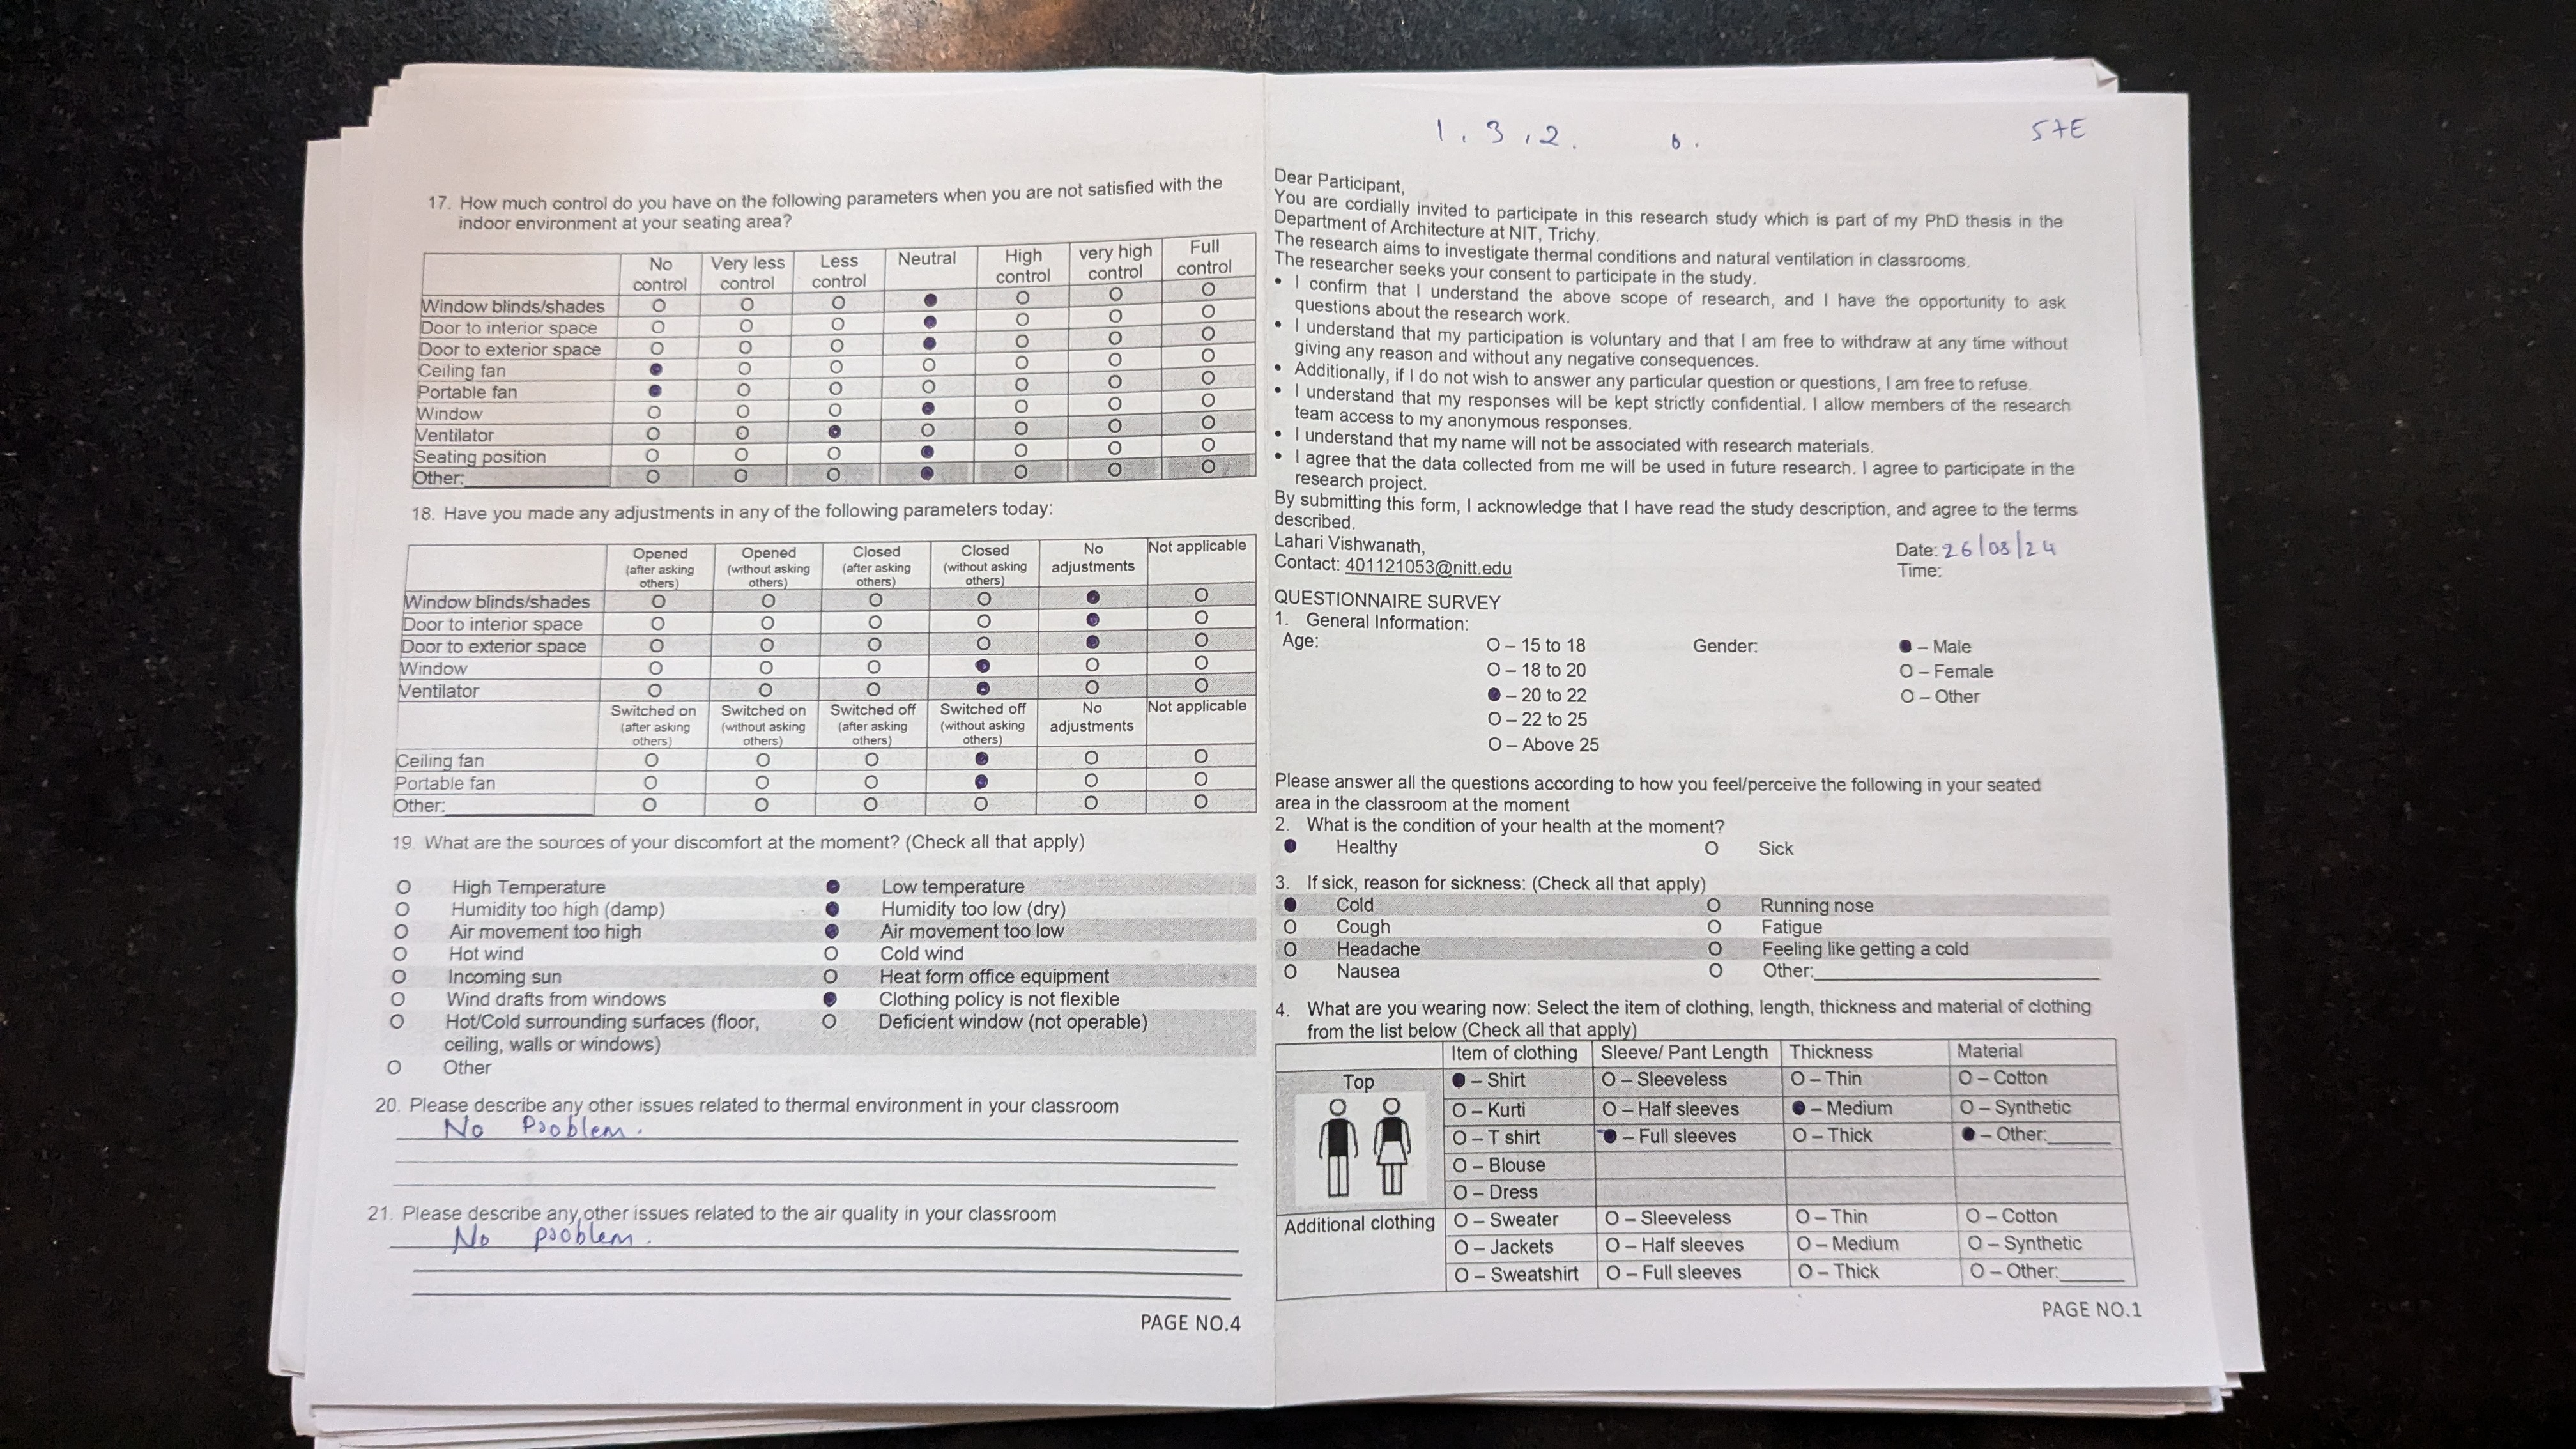 17. How much control do you have on the following parameters when you are not satisfied with the
indoor environment at your seating area?
No control Very less control Less control Neutral High control very high control Full control
Window blinds/shades O O O ● O O O
Door to interior space O O O ● O O O
Door to exterior space O O O ● O O O
Ceiling fan ● O O O O O O
Portable fan ● O O O O O O
Window O O O ● O O O
Ventilator O O ● O O O O
Seating position O O O ● O O O
Other:________ O O O ● O O O
18. Have you made any adjustments in any of the following parameters today:
Opened (after asking others) Opened (without asking others) Closed (after asking others) Closed (without asking others) No adjustments Not applicable
Window blinds/shades O O O O ● O
Door to interior space O O O O ● O
Door to exterior space O O O O ● O
Window O O O ● O O
Ventilator O O O ● O O
Switched on (after asking others) Switched on (without asking others) Switched off (after asking others) Switched off (without asking others) No adjustments Not applicable
Ceiling fan O O O ● O O
Portable fan O O O ● O O
Other:________ O O O O O O
19. What are the sources of your discomfort at the moment? (Check all that apply)
O High Temperature ● Low temperature
O Humidity too high (damp) ● Humidity too low (dry)
O Air movement too high ● Air movement too low
O Hot wind O Cold wind
O Incoming sun O Heat form office equipment
O Wind drafts from windows ● Clothing policy is not flexible
O Hot/Cold surrounding surfaces (floor, O Deficient window (not operable)
ceiling, walls or windows)
O Other
20. Please describe any other issues related to thermal environment in your classroom
No Problem.
21. Please describe any other issues related to the air quality in your classroom
No problem.
PAGE NO.4
1, 3, 2. 6. STE
Dear Participant,
You are cordially invited to participate in this research study which is part of my PhD thesis in the
Department of Architecture at NIT, Trichy.
The research aims to investigate thermal conditions and natural ventilation in classrooms.
The researcher seeks your consent to participate in the study.
• I confirm that I understand the above scope of research, and I have the opportunity to ask
questions about the research work.
• I understand that my participation is voluntary and that I am free to withdraw at any time without
giving any reason and without any negative consequences.
• Additionally, if I do not wish to answer any particular question or questions, I am free to refuse.
• I understand that my responses will be kept strictly confidential. I allow members of the research
team access to my anonymous responses.
• I understand that my name will not be associated with research materials.
• I agree that the data collected from me will be used in future research. I agree to participate in the
research project.
By submitting this form, I acknowledge that I have read the study description, and agree to the terms
described.
Lahari Vishwanath, Date: 26/08/24
Contact: 401121053@nitt.edu Time:
QUESTIONNAIRE SURVEY
1. General Information:
Age: O – 15 to 18 Gender: ● – Male
O – 18 to 20 O – Female
● – 20 to 22 O – Other
O – 22 to 25
O – Above 25
Please answer all the questions according to how you feel/perceive the following in your seated
area in the classroom at the moment
2. What is the condition of your health at the moment?
● Healthy O Sick
3. If sick, reason for sickness: (Check all that apply)
● Cold O Running nose
O Cough O Fatigue
O Headache O Feeling like getting a cold
O Nausea O Other:________
4. What are you wearing now: Select the item of clothing, length, thickness and material of clothing
from the list below (Check all that apply)
Item of clothing Sleeve/ Pant Length Thickness Material
Top ● – Shirt O – Sleeveless O – Thin O – Cotton
O – Kurti O – Half sleeves ● – Medium O – Synthetic
O – T shirt ● – Full sleeves O – Thick ● – Other:______
O – Blouse
O – Dress
Additional clothing O – Sweater O – Sleeveless O – Thin O – Cotton
O – Jackets O – Half sleeves O – Medium O – Synthetic
O – Sweatshirt O – Full sleeves O – Thick O – Other:______
PAGE NO.1